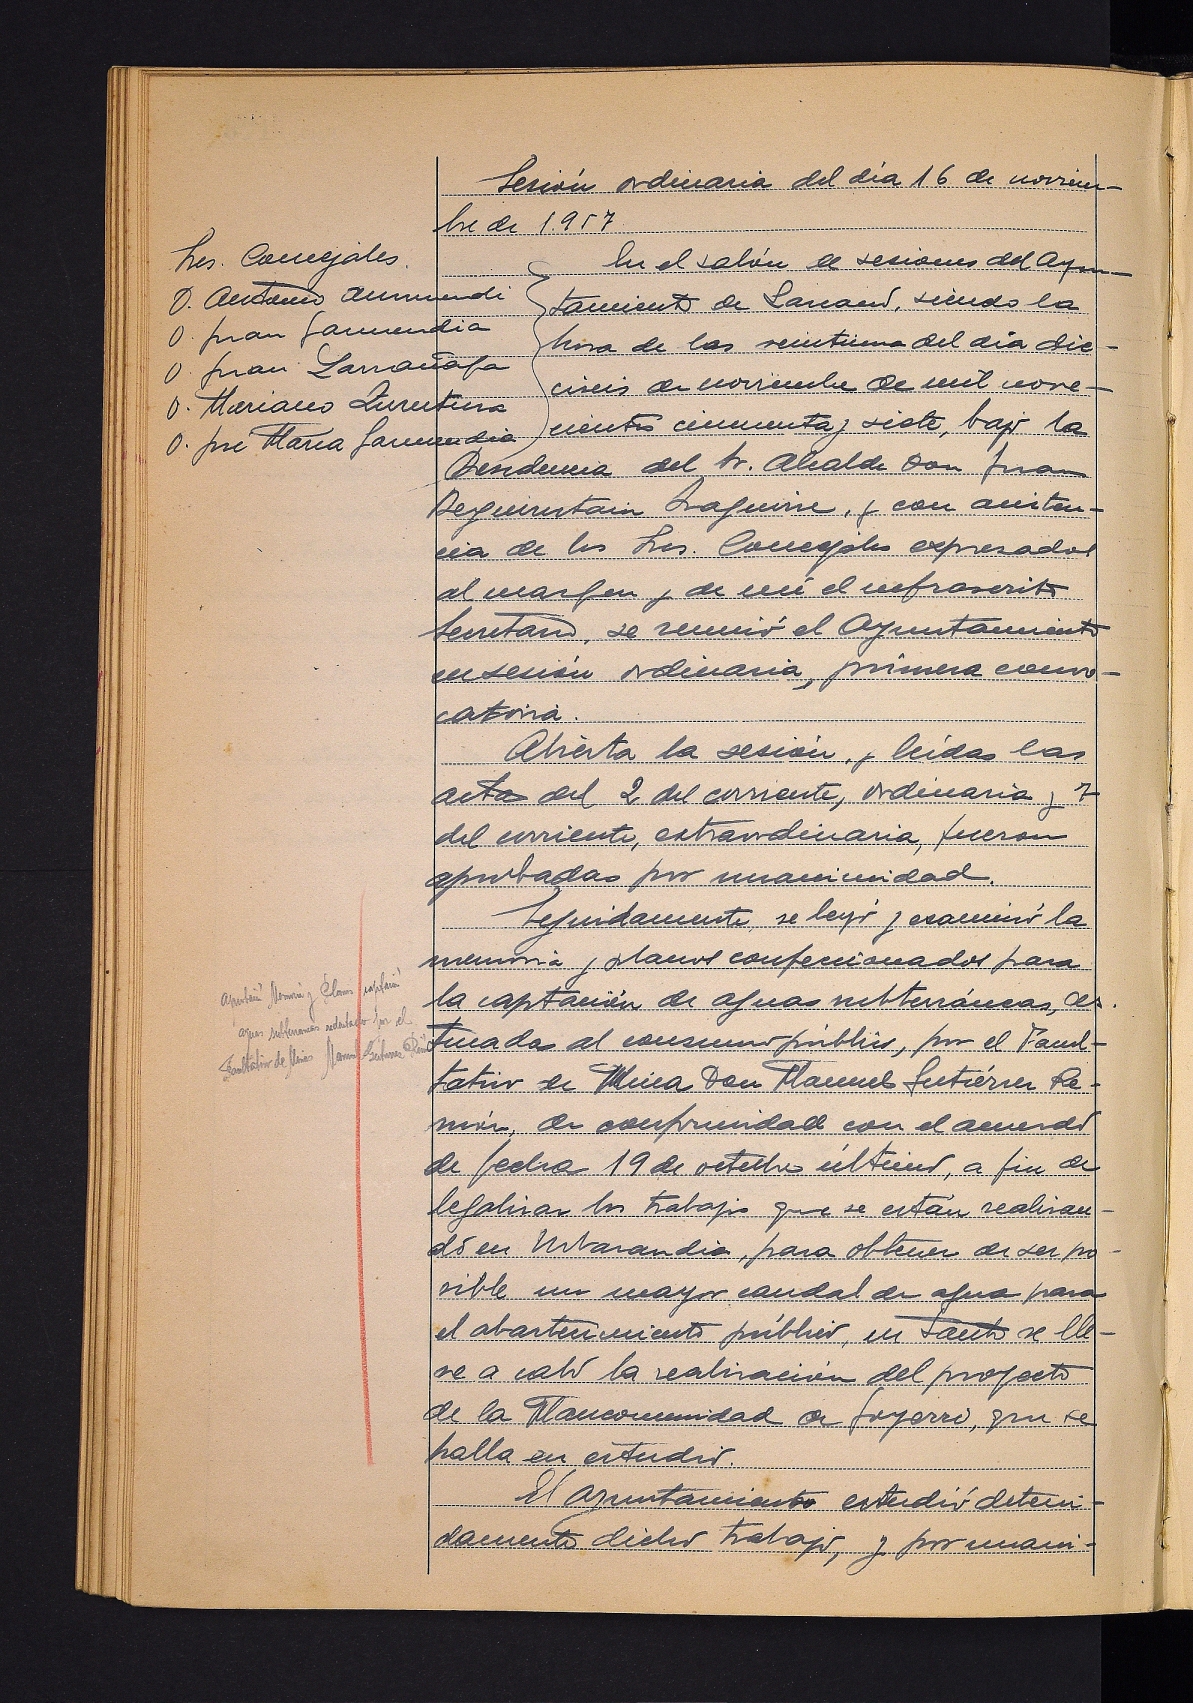 Sesión ordinaria del día 16 de noviem-
bre de 1.957
Sres. Concejales.
D. Antonio Aunmendi
D. Juan Garmendia
D. Juan Larrañaga
D. Mariano Zurutuza
D. José María Garmendia
En el salón de sesiones del Ayun-
tamiento de Lazcano, siendo la
hora de las veintiuna del día die-
ciseis de noviembre de mil nove-
cientos cincuenta y siete, bajo la
Presidencia del Sr. Alcalde Don Juan
Beguiristain Izaguirre, y con asisten-
cia de los Sres. Concejales expresados
al margen y de mí el infrascrito
Secretario, se reunió el Ayuntamiento
en sesión ordinaria, primera convo-
catoria.
Abierta la sesión, y leídas las
actas del 2 del corriente, ordinaria y 7
del corriente, extraordinaria, fueron
aprobadas por unanimidad.
Seguidamente, se leyó y examinó la
memoria y planos confeccionados para
la captación de aguas subterráneas, des-
tinadas al consumo público, por el Facul-
tativo de Mina Don Manuel Gutiérrez Re-
món, de conformidad con el acuerdo
de fecha 19 de octubre último, a fin de
legalizar los trabajos que se están realizan-
do en Urbarandia, para obtener de ser po-
sible un mayor caudal de agua para
el abastecimiento público, en tanto se lle-
ve a cabo la realización del proyecto
de la Mancomunidad de Goyerri, que se
halla en estudio.
El Ayuntamiento estudió deteni-
damente dicho trabajo, y por unani-
Memoria y Planos captación
aguas subterráneas redactado por el
Facultativo de Minas Manuel Gutierrez Remón